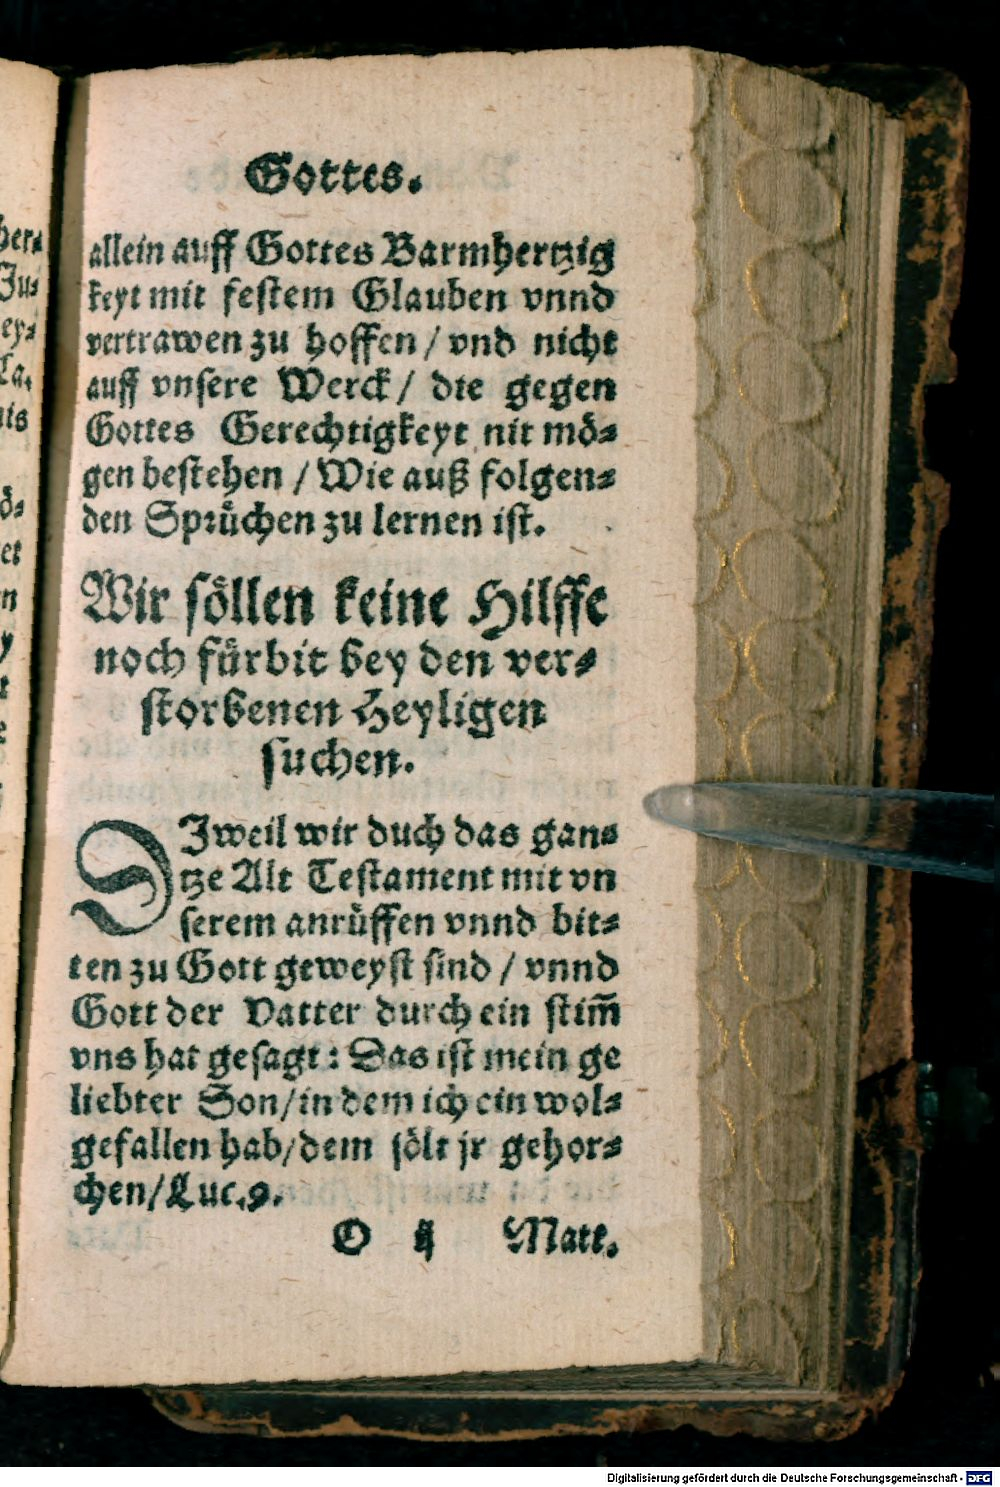 Gottes.
allein auff Gottes Barmhertzig
keyt mit festem Glauben vnnd
vertrawen zu hoffen / vnd nicht
auff vnsere Werck / die gegen
Gottes Gerechtigkeyt nit mö⸗
gen bestehen / Wie auß folgen⸗
den Sprüchen zu lernen ist.
Wir söllen keine Hilffe
noch fürbit bey den ver⸗
storbenen Heyligen
suchen.
DJweil wir duch das gan⸗
tze Alt Testament mit vn
serem anrüffen vnnd bit⸗
ten zu Gott geweyst sind / vnnd
Gott der Vatter durch ein stim̃
vns hat gesagt : Das ist mein ge
liebter Son/in dem ich ein wol⸗
gefallen hab/dem sölt jr gehor⸗
chen/Luc.9.
O ij Matt.
Digitalisierung gefördert durch die Deutsche Forschungsgemeinschaft - DFG